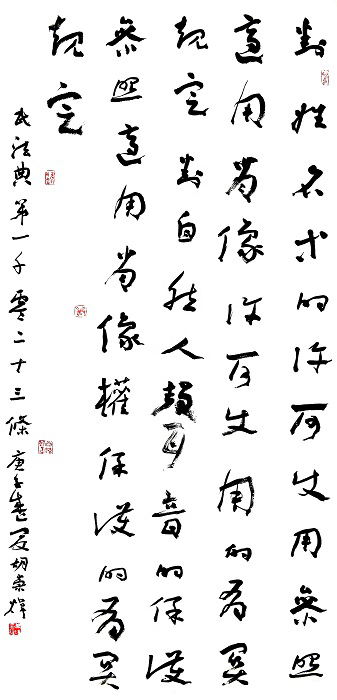 對姓名等的許可使用參照
適用肖像許可使用的有關
規定對自然人聲音的保護
參照適用肖像權保護的有關
規定
民法典第一千零二十三條 庚子夏胡崇煒